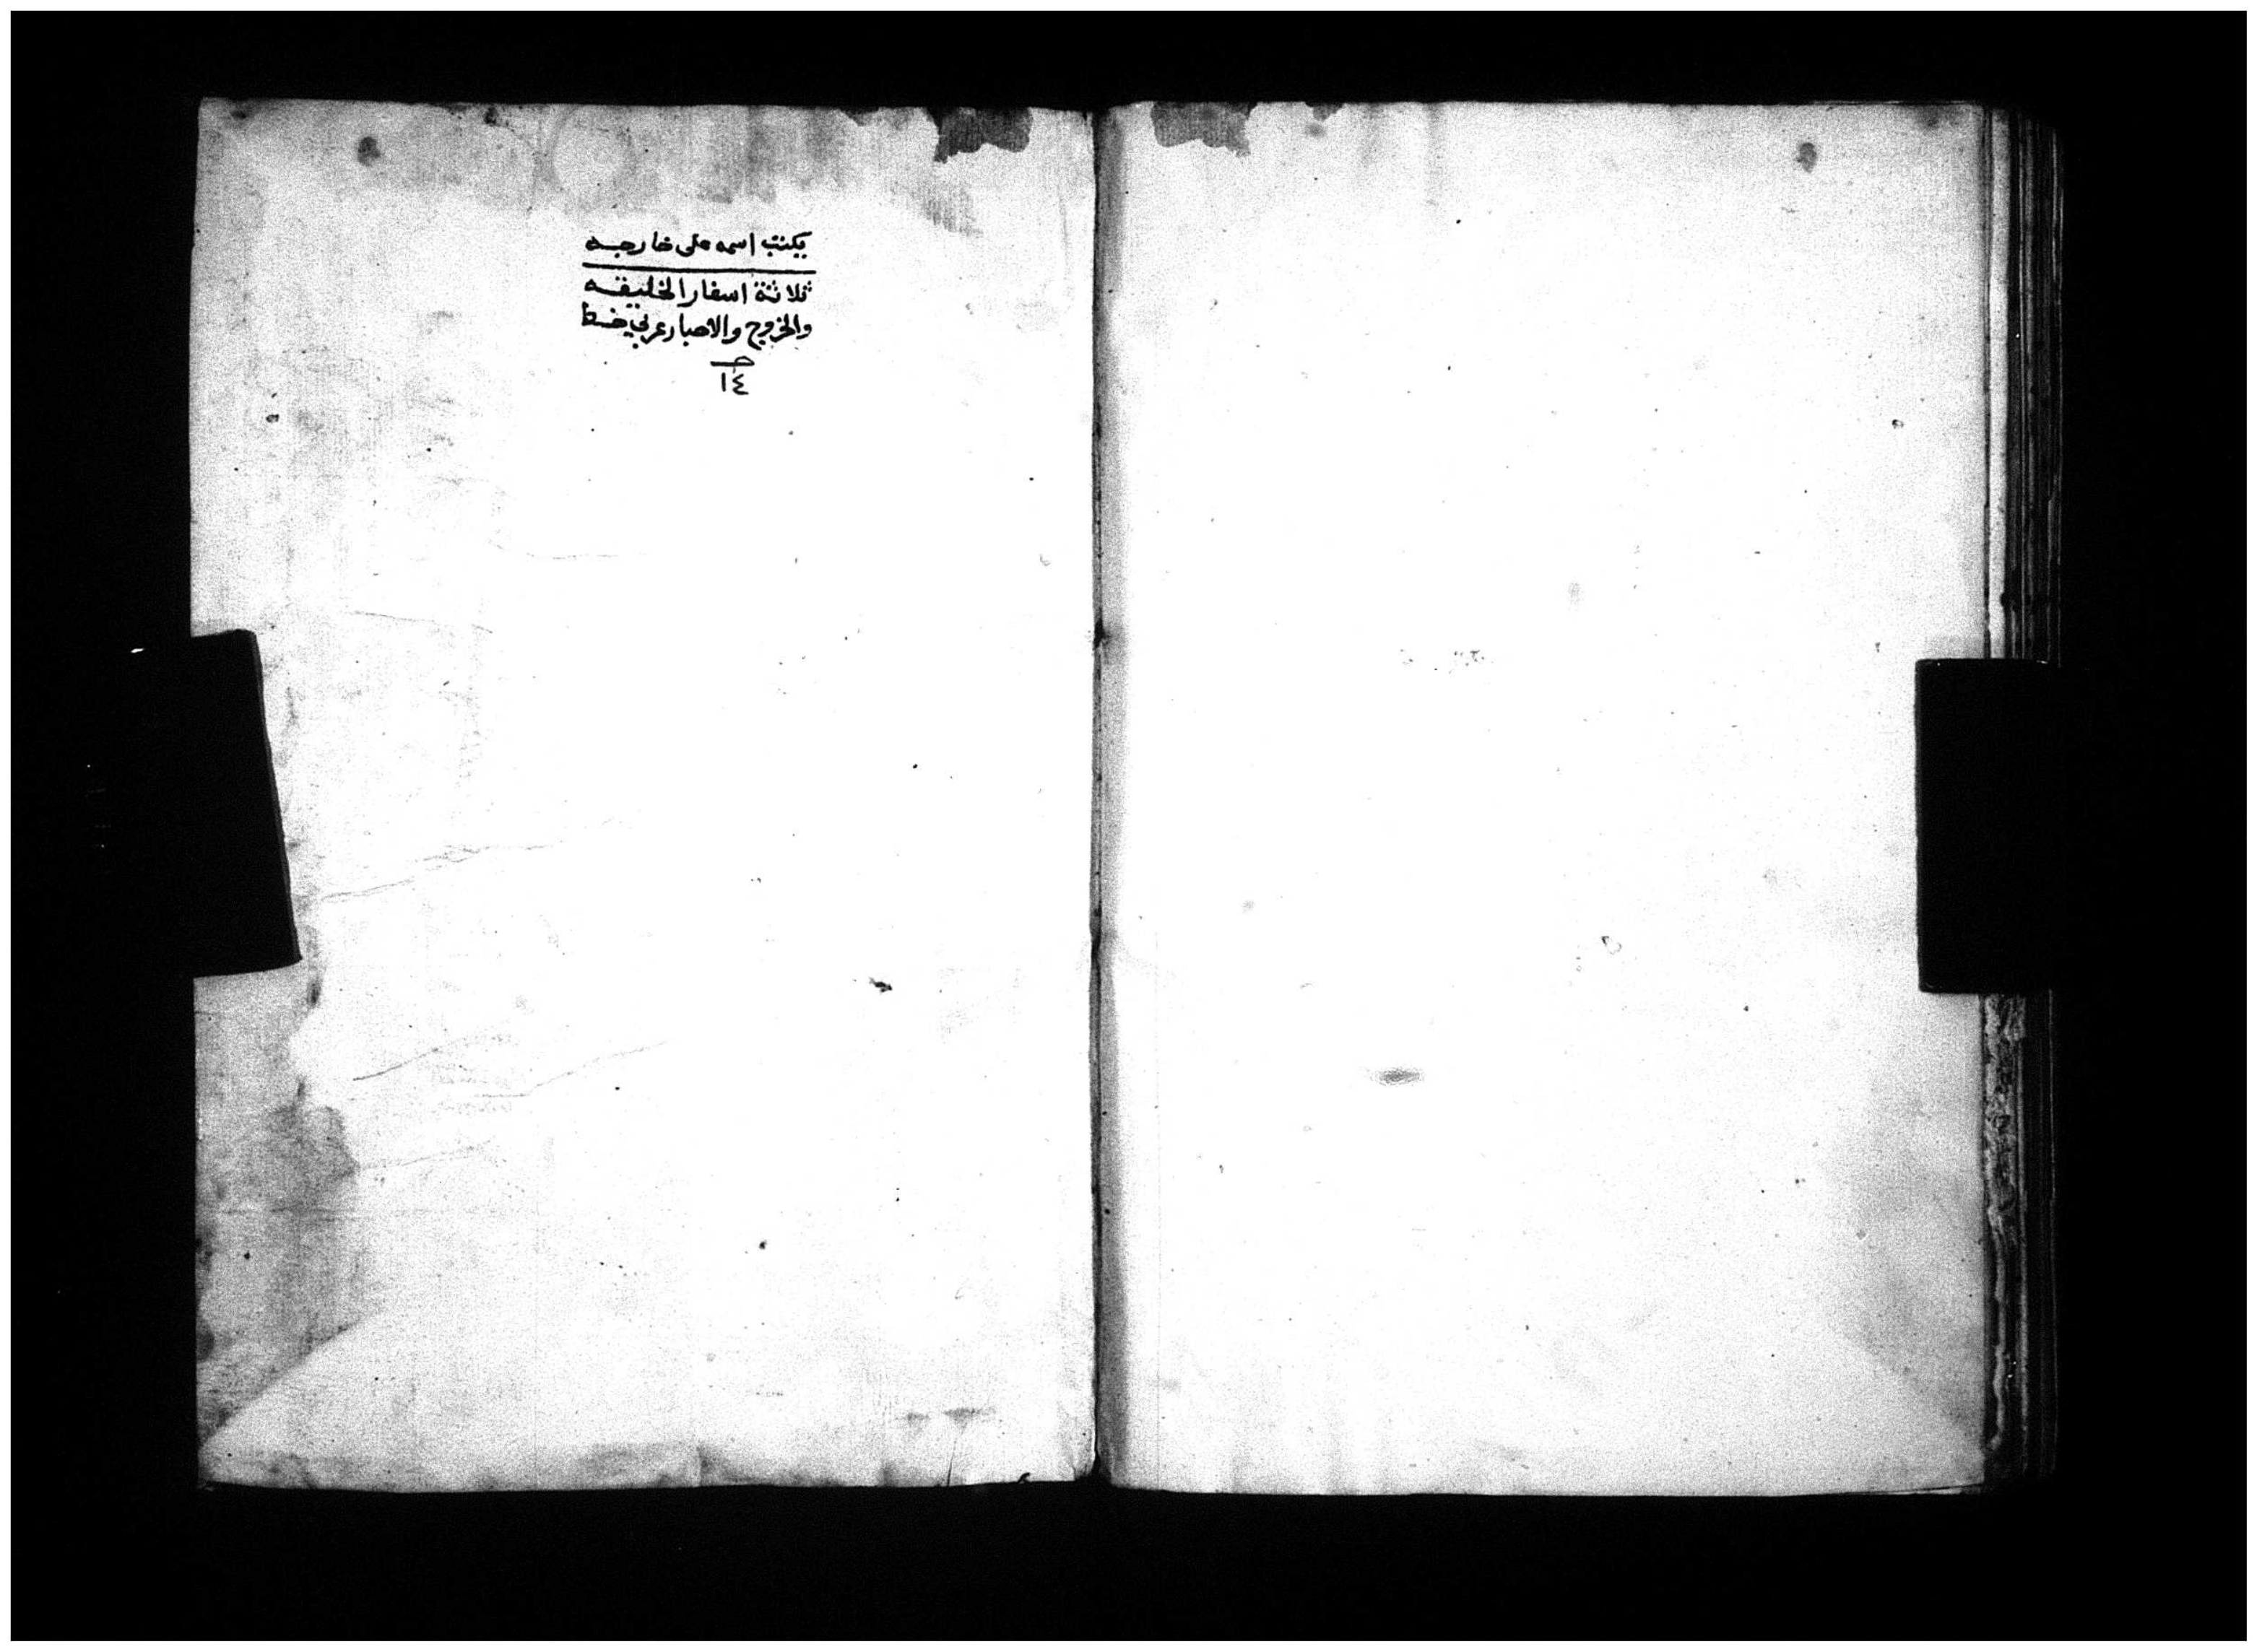 يكتب اسمه على خارجه
ثلاثة اسفار الخليقه
والخروج والاحبار عربي
١٤